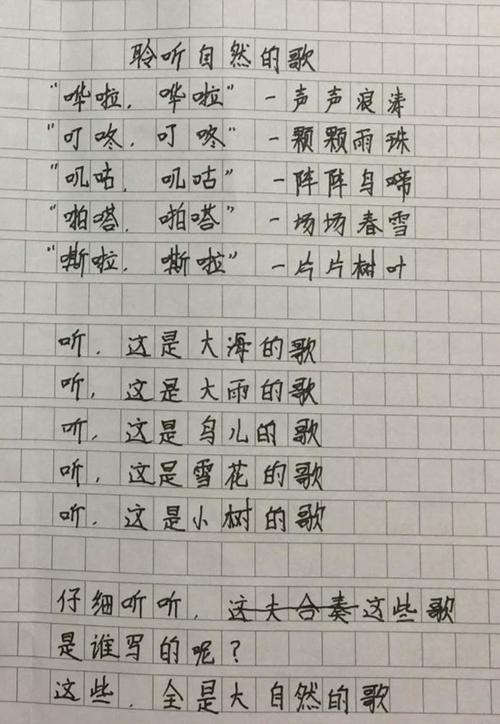 聆听自然的歌
“哗啦，哗啦”－声声浪涛
“叮咚，叮咚”－颗颗雨珠
“叽咕，叽咕”－阵阵鸟啼
“啪嗒，啪嗒”－场场春雪
“嘶啦，嘶啦”－片片树叶
听，这是大海的歌
听，这是大雨的歌
听，这是鸟儿的歌
听，这是雪花的歌
听，这是小树的歌
仔细听听，这大合奏这些歌
是谁写的呢？
这些，全是大自然的歌